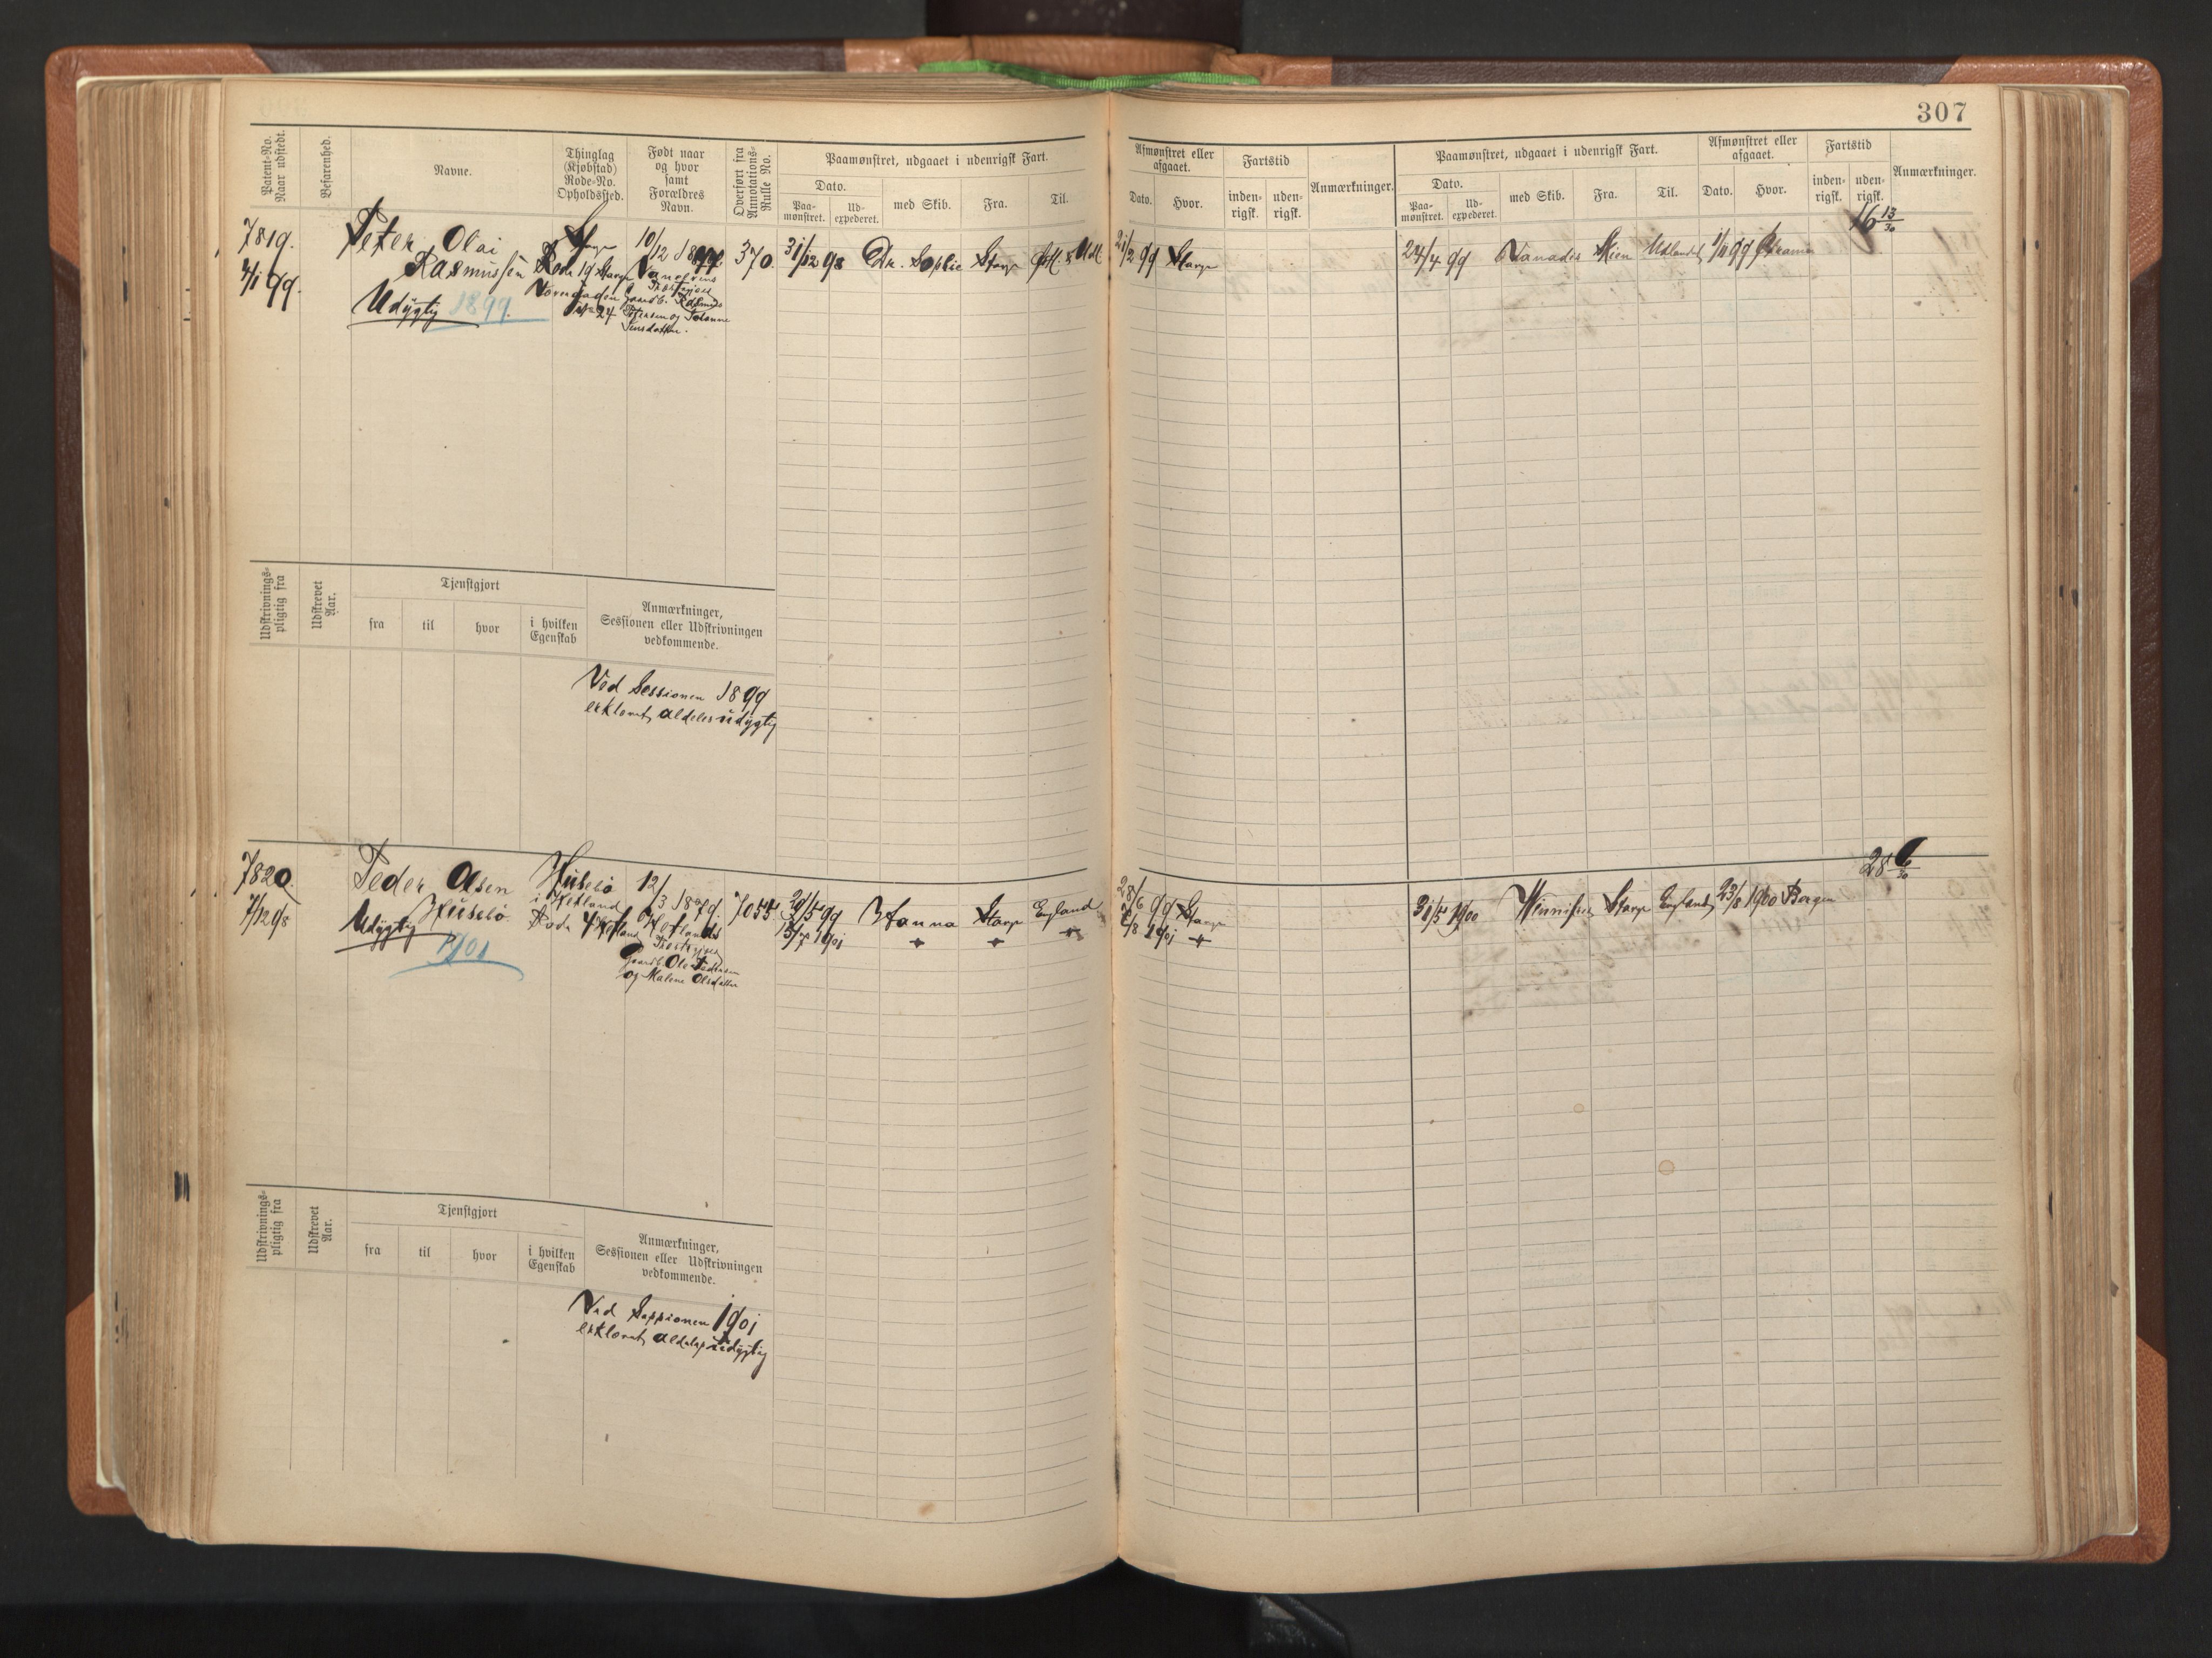 307
Patent-No.
Naar udstedt.
Befarenhed.
Navne.
Thinglag
(Kjøbstad)
Rode-No.
Opholdssted.
Født naar
og hvor
samt
Forældres
Navn.
Overført fra
Annotations-
Rulle No.
Paamønstret, udgaaet i udenrigsk Fart.
Dato.
Paa-
mønstret.
Ud-
expederet.
med Skib.
Fra.
Til.
Afmønstret eller
afgaaet.
Dato.
Hvor.
Fartstid
inden-
rigsk.
uden-
rigsk.
Anmærkninger.
Paamønstret, udgaaet i udenrigsk Fart.
Dato.
Paa-
mønstret.
Ud-
expederet.
med Skib.
Fra.
Til.
Afmønstret eller
afgaaet.
Dato.
Hvor.
Fartstid
inden-
rigsk.
uden-
rigsk.
Anmærkninger.
7819.
4/1 99.
Peter Olai
Rasmussen
Udygtig 1899.
Rode 19
10/12
370.
31/12 98 Dr. Sophie Stavgr
21/2 99 Stavgr
24/4 99 Vanadis Skien Udlandet 1/11 99
16 13/30
Udskrivnings-
pligtig fra
Udskrevet
Aar.
Tjenstgjort
fra
til
hvor
i hvilken
Egenskab
Anmærkninger,
Sessionen eller Udskrivningen
vedkommende.
Ved Sessionen 1899
erklæret aldeles udygtig
7820.
7/12 98
Peder Olsen
Husebø
Udygtig
1901
Husebø
i Hetland
Rode 4
12/3 1879.
Gaardb. Ole Pedersen
og Malene Olsdatter
7055.
29/5 99 Hanna Stavgr England
28/6 99 Stavgr
31/5 1900 Stavgr England 23/8 1900 Bergen
28 6/30
Udskrivnings-
pligtig fra
Udskrevet
Aar.
Tjenstgjort
fra
til
hvor
i hvilken
Egenskab
Anmærkninger,
Sessionen eller Udskrivningen
vedkommende.
Ved Sessionen 1901
erklæret aldeles udygtig